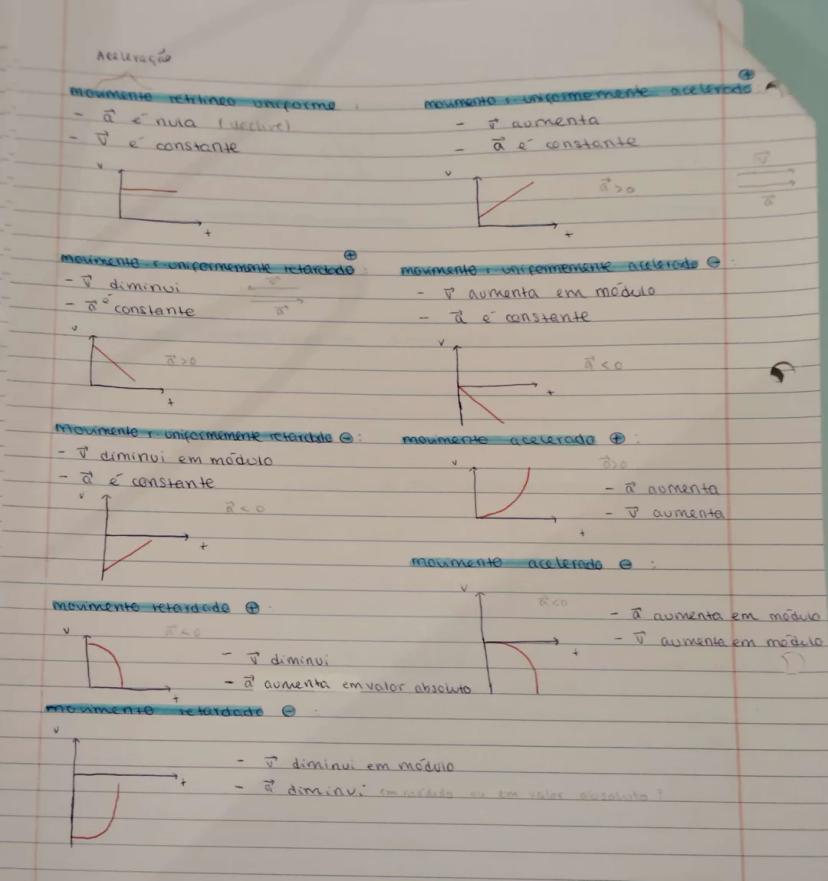 Aceleração
movimento retilíneo uniforme:
- a⃗ é nula (declive)
- v⃗ é constante
v
t
movimento r. uniformemente acelerado ⊕:
- v⃗ aumenta
- a⃗ é constante
v
a⃗ >0
t
v⃗
a⃗
movimento r. uniformemente retardado ⊕:
- v⃗ diminui
- a⃗ é constante
v⃗
a⃗
v
a⃗ >0
t
movimento r. uniformemente acelerado ⊖:
- v⃗ aumenta em módulo
- a⃗ é constante
v
a⃗ <0
t
movimento r. uniformemente retardado ⊖:
- v⃗ diminui em módulo
- a⃗ é constante
v
a⃗ <0
t
movimento acelerado ⊕:
v
a⃗>0
- a⃗ aumenta
- v⃗ aumenta
t
movimento acelerado ⊖:
v
a⃗<0
- a⃗ aumenta em módulo
- v⃗ aumenta em módulo
t
movimento retardado ⊕:
v
a⃗ <0
- v⃗ diminui
- a⃗ aumenta em valor absoluto
t
movimento retardado ⊖:
v
t
- v⃗ diminui em módulo
- a⃗ diminui em módulo ou em valor absoluto?